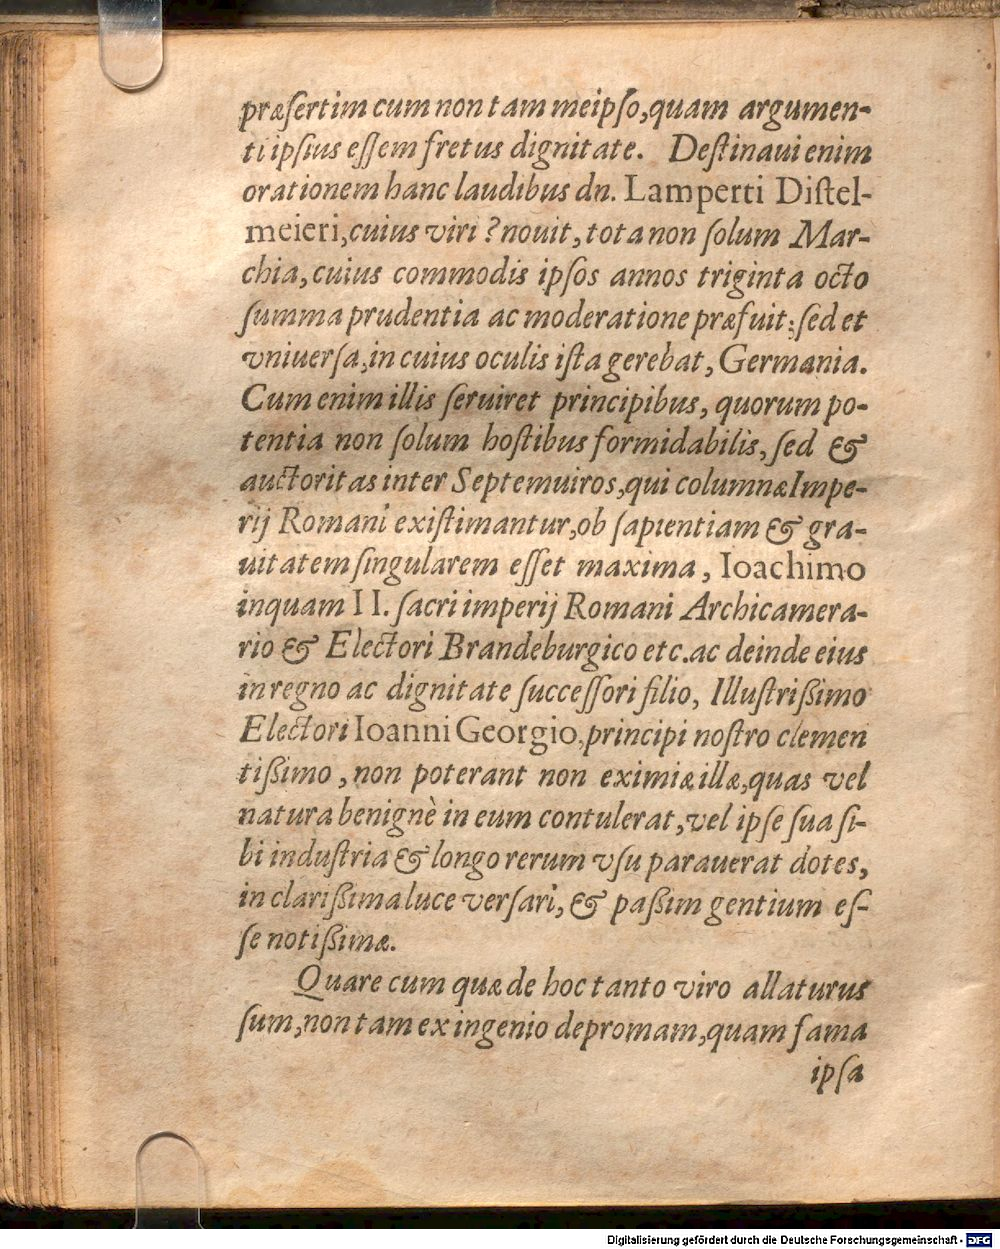 præſertim cum non tam meipſo, quam argumen-
ti ipſius eſſem fretus dignitate. Deſtinaui enim
orationem hanc laudibus dn. Lamperti Diſtel-
meieri, cuius viri ? nouit, tota non ſolum Mar-
chia, cuius commodis ipſos annos triginta octo
ſumma prudentia ac moderatione præfuit: ſed et
vniuerſa, in cuius oculis iſta gerebat, Germania.
Cum enim illis ſeruiret principibus, quorum po-
tentia non ſolum hoſtibus formidabilis, ſed &
auctoritas inter Septemuiros, qui columnæ Impe-
rij Romani exiſtimantur, ob ſapientiam & gra-
uitatem ſingularem eſſet maxima, Ioachimo
inquam II. ſacri imperij Romani Archicamera-
rio & Electori Brandeburgico etc. ac deinde eius
in regno ac dignitate ſucceſſori filio, Illuſtrißimo
Electori Ioanni Georgio, principi noſtro clemen
tißimo, non poterant non eximiæ illæ, quas vel
natura benignè in eum contulerat, vel ipſe ſua ſi-
bi induſtria & longo rerum vſu parauerat dotes,
in clarißima luce verſari, & paßim gentium eſ-
ſe notißimæ.
Quare cum quæ de hoc tanto viro allaturus
ſum, non tam ex ingenio depromam, quam fama
ipſa
Digitalisierung gefördert durch die Deutsche Forschungsgemeinschaft - DFG